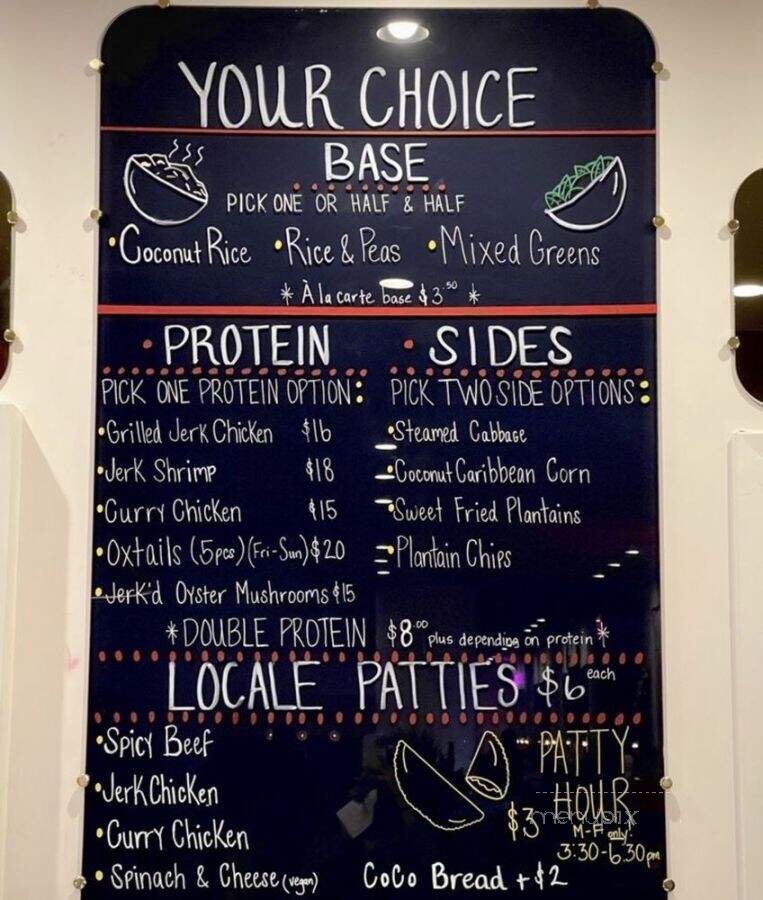 YOUR CHOICE
BASE
PICK ONE OR HALF & HALF
•Coconut Rice •Rice & Peas •Mixed Greens
* À la carte base $3.50 *
• PROTEIN
PICK ONE PROTEIN OPTION:
•Grilled Jerk Chicken $16
•Jerk Shrimp $18
•Curry Chicken $15
•Oxtails (5pcs) (Fri-Sun) $20
•Jerk'd Oyster Mushrooms $15
• SIDES
PICK TWO SIDE OPTIONS:
•Steamed Cabbage
•Coconut Caribbean Corn
•Sweet Fried Plantains
•Plantain Chips
*DOUBLE PROTEIN $8.00 plus depending on protein*
LOCALE PATTIES $6 each
•Spicy Beef
•Jerk Chicken
•Curry Chicken
•Spinach & Cheese (vegan)
PATTY
HOUR
$3 M-F only!
3:30-6:30pm
menupix
CoCo Bread +$2